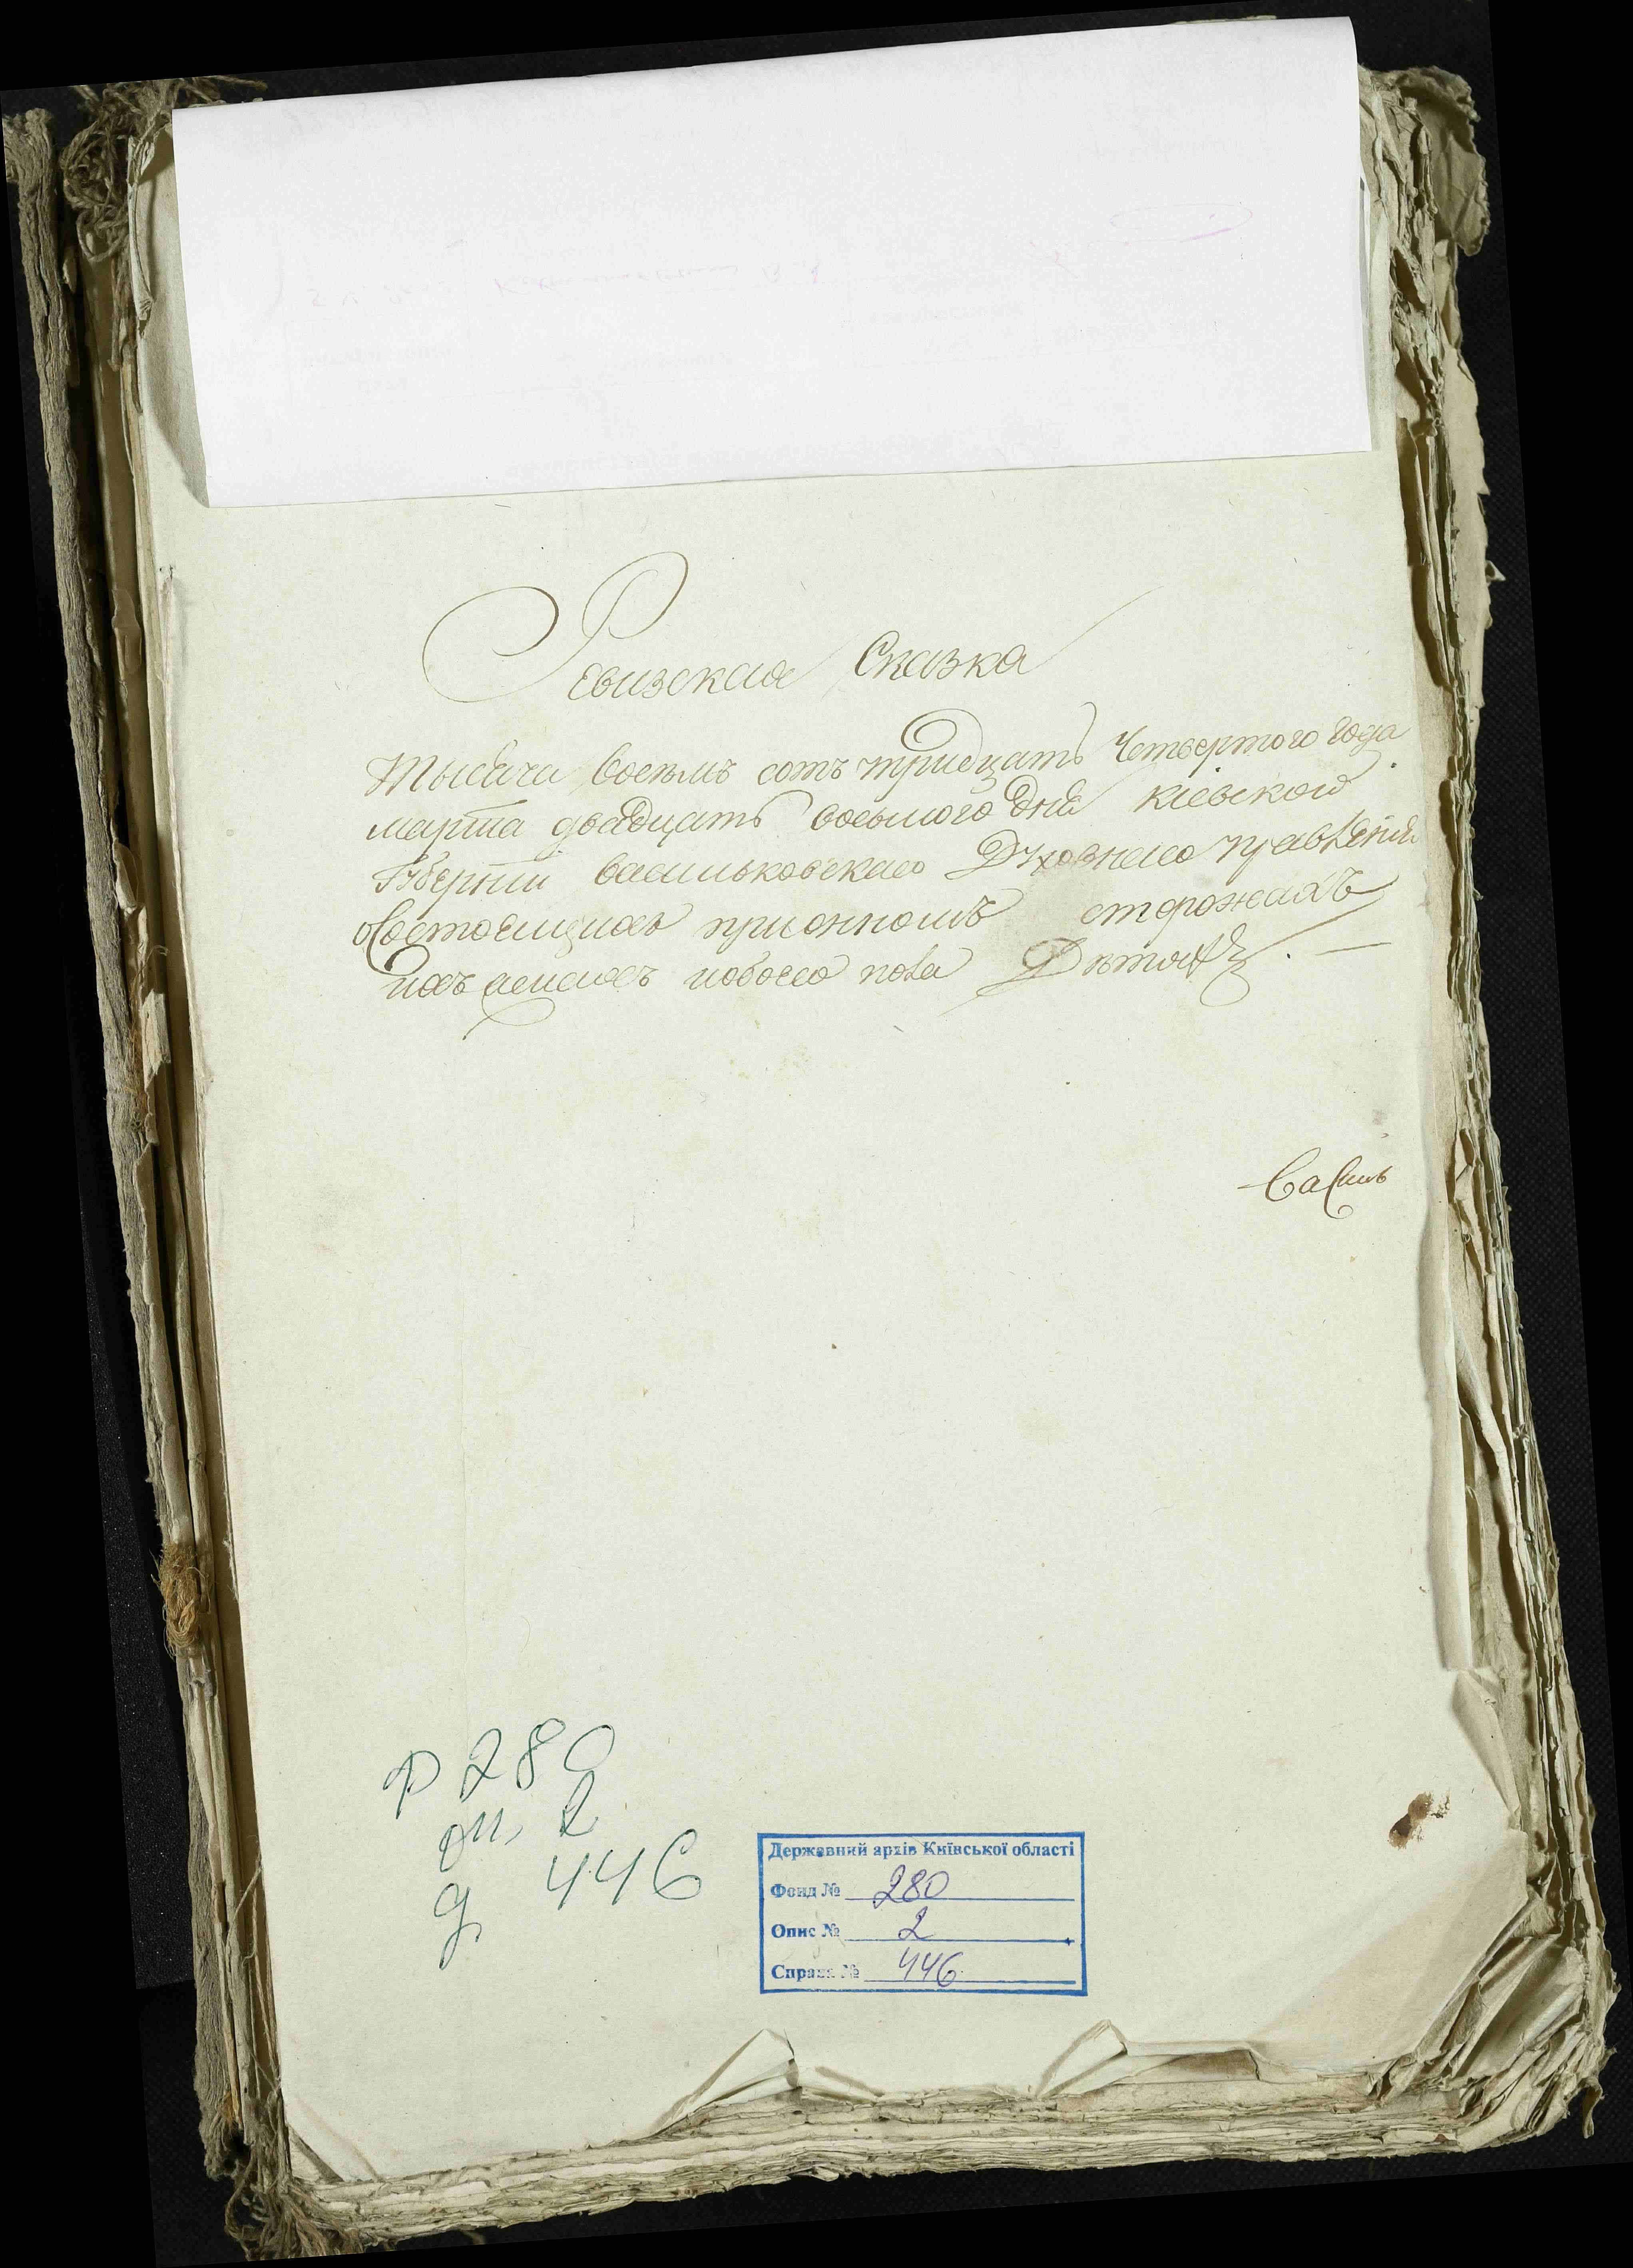 Ревизская Сказка
Тысяча восемь сотъ тридцать Четвертого года
марта двадцать восьмого дня Кіевской
Губерніи васильковскаго Духовнаго правленія
о состоящихъ при ономъ сторожахъ
ихъ обоего пола Дѣтяхъ. —
Василь
Ф 280
оп. 2
д 446
Державний архів Київської області
Фонд № 280
Опис № 2
Справа № 446